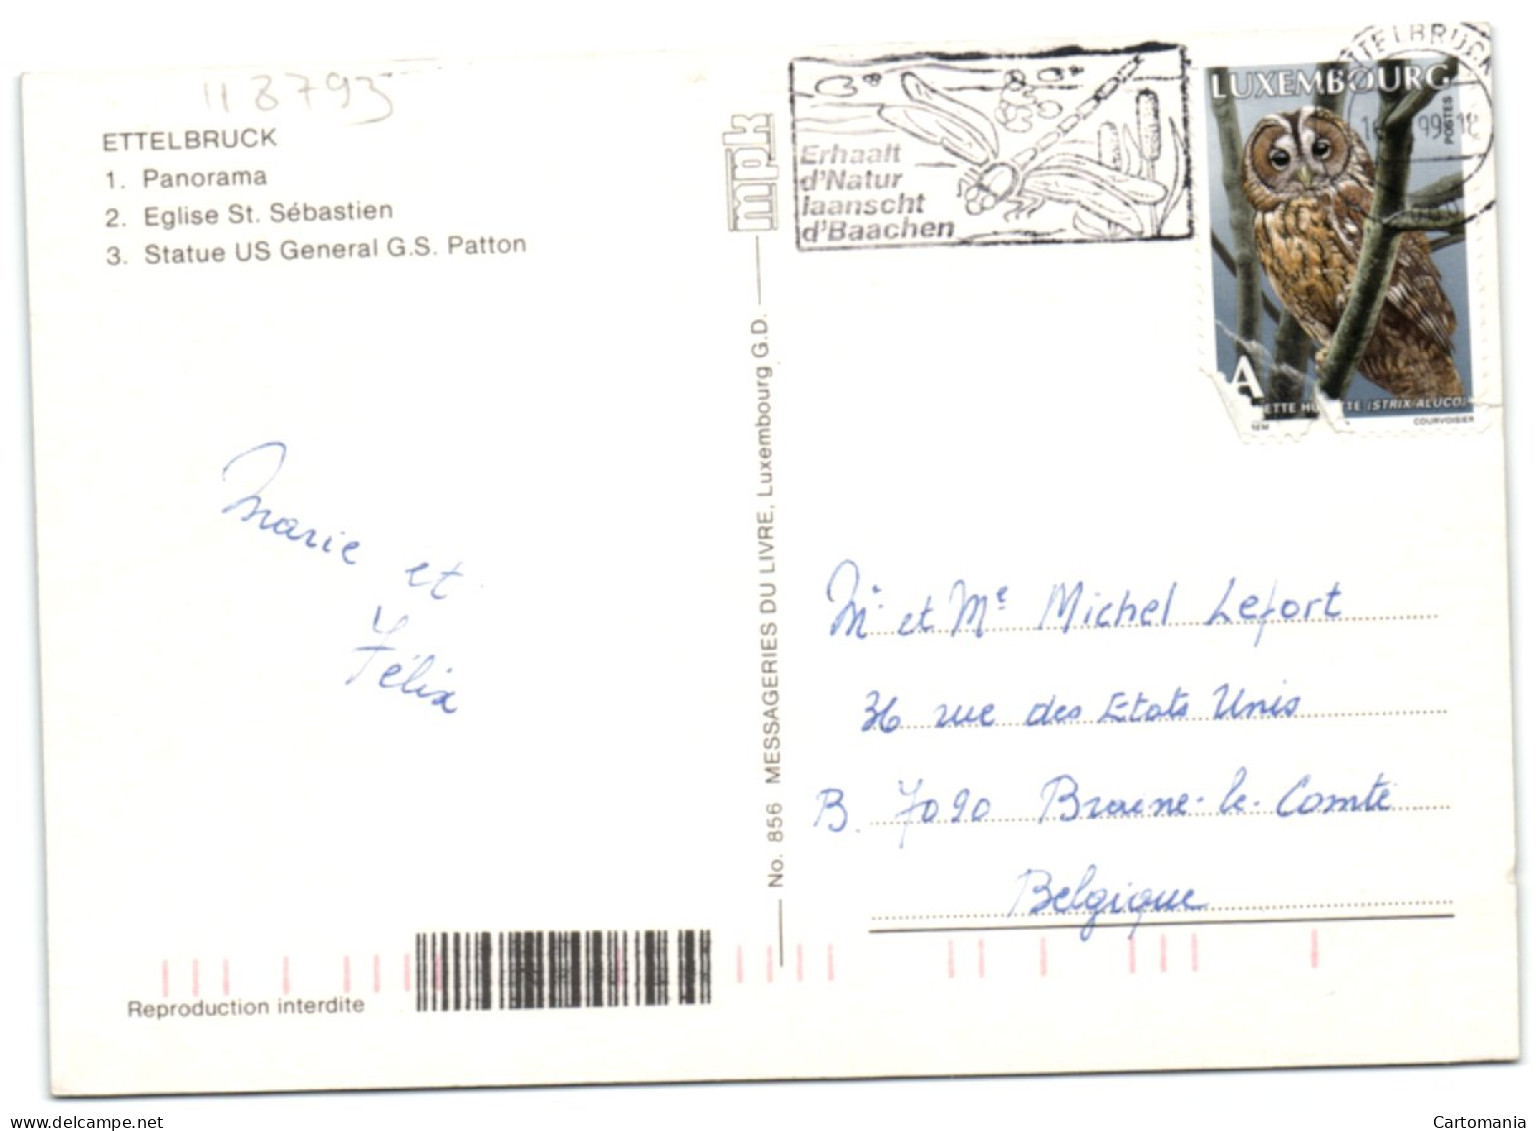 118793
ETTELBRUCK
1. Panorama
2. Eglise St. Sébastien
3. Statue US General G.S. Patton
Marie et
Félix
Reproduction interdite
mpk
No. 856 MESSAGERIES DU LIVRE, Luxembourg G.D.
Erhaalt
d'Natur
laanscht
d'Baachen
ETTELBRUCK
99
18
LUXEMBOURG
POSTES
A
(STRIX ALUCO)
COURVOISIER
Mr et Me Michel Lefort
36 rue des Etats Unis
B. 7090 Braine-le-Comte
Belgique
Cartomania
www.delcampe.net